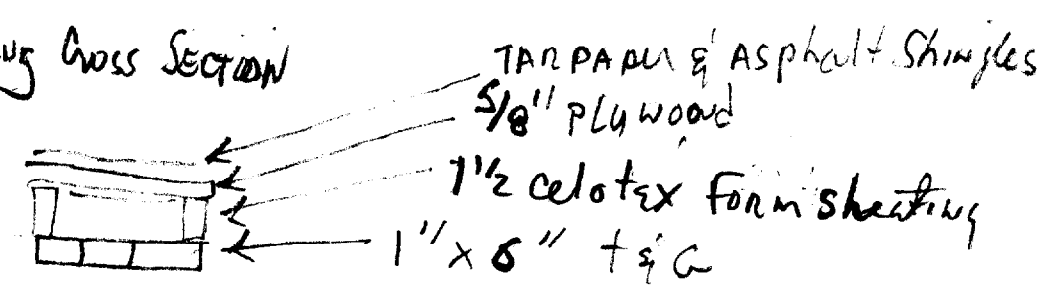 Cross Section
TARPAPER & Asphalt Shingles
5/8" Plywood
1 1/2 celotex Foam sheating
1" x 6" t & G